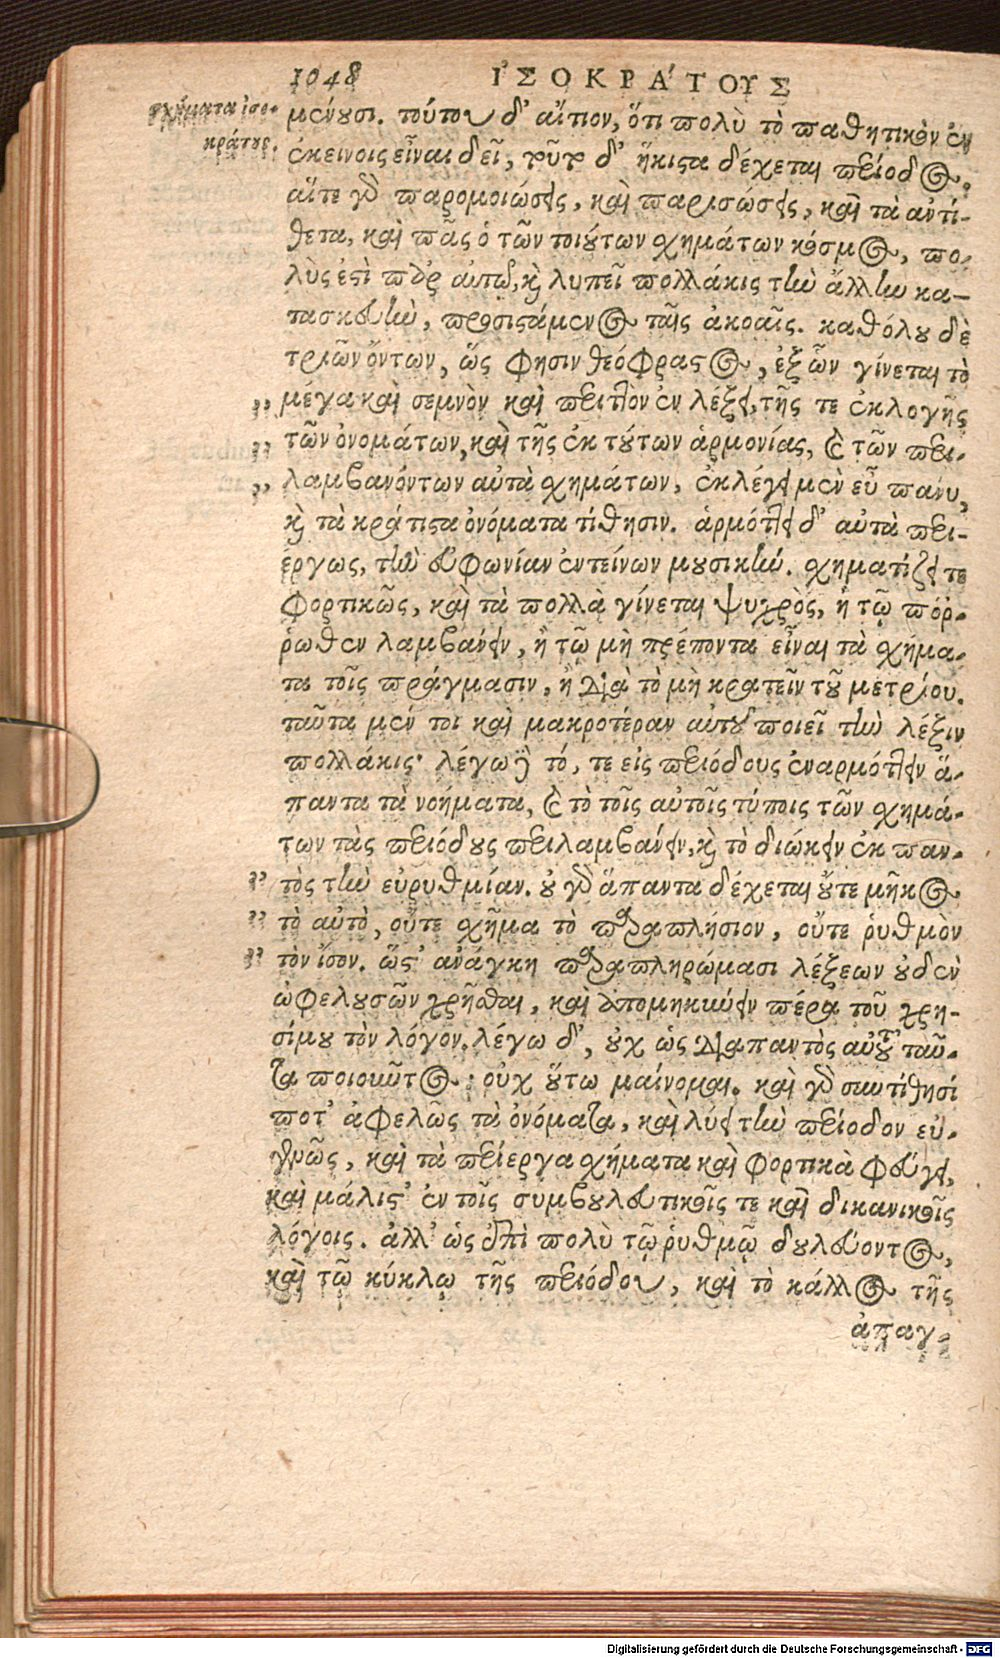 1048 ἸΣΟΚΡΆΤΟΥΣ
σχήματα ἰσο-
κράτους.
μένουσι. τούτου δ' αἴτιον, ὅτι πολὺ τὸ παθητικὸν ἐν
ἐκείνοις εἶναι δεῖ, τοῦτο δ' ἥκιστα δέχεται περίοδος.
αἵτε γὰρ παρομοιώσεις, καὶ παρισώσεις, καὶ τὰ ἀντί-
θετα, καὶ πᾶς ὁ τῶν τοιούτων σχημάτων κόσμος, πο-
λὺς ἐστὶ παρ' αὐτῷ, καὶ λυπεῖ πολλάκις τὴν ἄλλην κα-
τασκευὴν, προσιστάμενος ταῖς ἀκοαῖς. καθόλου δὲ
τριῶν ὄντων, ὥς φησιν θεόφραστος, ἐξ ὧν γίνεται τὸ
" μέγα καὶ σεμνὸν καὶ περιττὸν ἐν λέξει, τῆς τε ἐκλογῆς
" τῶν ὀνομάτων, καὶ τῆς ἐκ τούτων ἁρμονίας, καὶ τῶν περι-
" λαμβανόντων αὐτὰ σχημάτων, ἐκλέγει μὲν εὖ πάνυ,
καὶ τὰ κράτιστα ὀνόματα τίθησιν. ἁρμόττει δ' αὐτὰ περι-
έργως, τὴν εὐφωνίαν ἐντείνων μουσικήν. σχηματίζει τε
φορτικῶς, καὶ τὰ πολλὰ γίνεται ψυχρὸς, ἢ τῷ πόρ-
ρωθεν λαμβάνειν, ἢ τῷ μὴ πρέποντα εἶναι τὰ σχήμα-
τα τοῖς πράγμασιν, ἢ διὰ τὸ μὴ κρατεῖν τοῦ μετρίου.
ταῦτα μέν τοι καὶ μακροτέραν αὐτοῦ ποιεῖ τὴν λέξιν
πολλάκις· λέγω δὲ τό, τε εἰς περιόδους ἐναρμόττειν ἅ-
παντα τὰ νοήματα, καὶ τὸ τοῖς αὐτοῖς τύποις τῶν σχημά-
των τὰς περιόδους περιλαμβάνειν, καὶ τὸ διώκειν ἐκ παν-
" τὸς τὴν εὐρυθμίαν. οὐ γὰρ ἅπαντα δέχεται οὔτε μῆκος
" τὸ αὐτὸ, οὔτε σχῆμα τὸ παραπλήσιον, οὔτε ῥυθμὸν
" τὸν ἴσον. ὥστ' ἀνάγκη παραπληρώμασι λέξεων οὐδὲν
ὠφελουσῶν χρῆσθαι, καὶ ἀπομηκύνειν πέρα τοῦ χρη-
σίμου τὸν λόγον. λέγω δ', οὐχ ὡς διαπαντὸς αὐτοῦ ταῦ-
τα ποιοῦντος: οὐχ οὕτω μαίνομαι. καὶ γὰρ συντίθησί
ποτ' ἀφελῶς τὰ ὀνόματα, καὶ λύει τὴν περίοδον εὐ-
γενῶς, καὶ τὰ περίεργα σχήματα καὶ φορτικὰ φεύγει,
καὶ μάλιστ' ἐν τοῖς συμβουλευτικοῖς τε καὶ δικανικοῖς
λόγοις. ἀλλ' ὡς ἐπὶ πολὺ τῷ ῥυθμῷ δουλεύοντος,
καὶ τῷ κύκλῳ τῆς περιόδου, καὶ τὸ κάλλος τῆς
ἀπαγ-
Digitalisierung gefördert durch die Deutsche Forschungsgemeinschaft - DFG